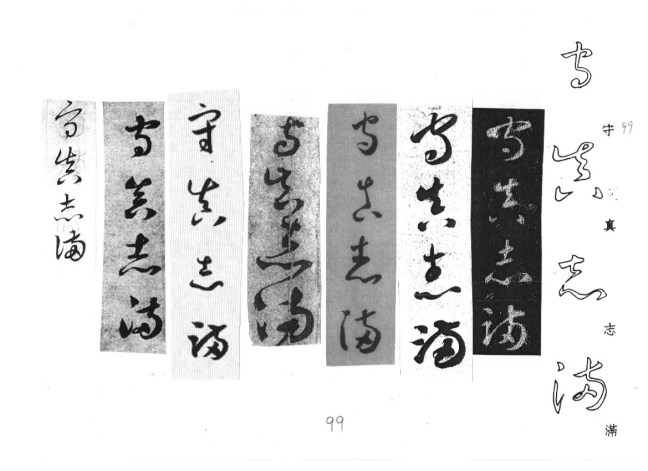 守真志滿
守真志滿
99
守真志滿
守真志滿
守真志滿
守真志滿
守真志滿
守真志滿
守真志滿
99